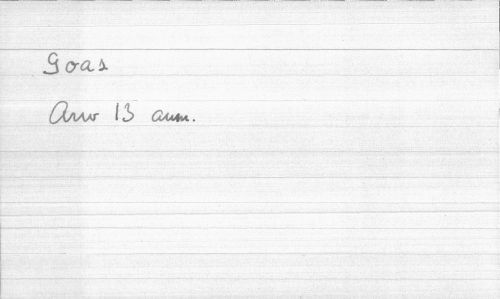 Goas
Arw 13 anm.